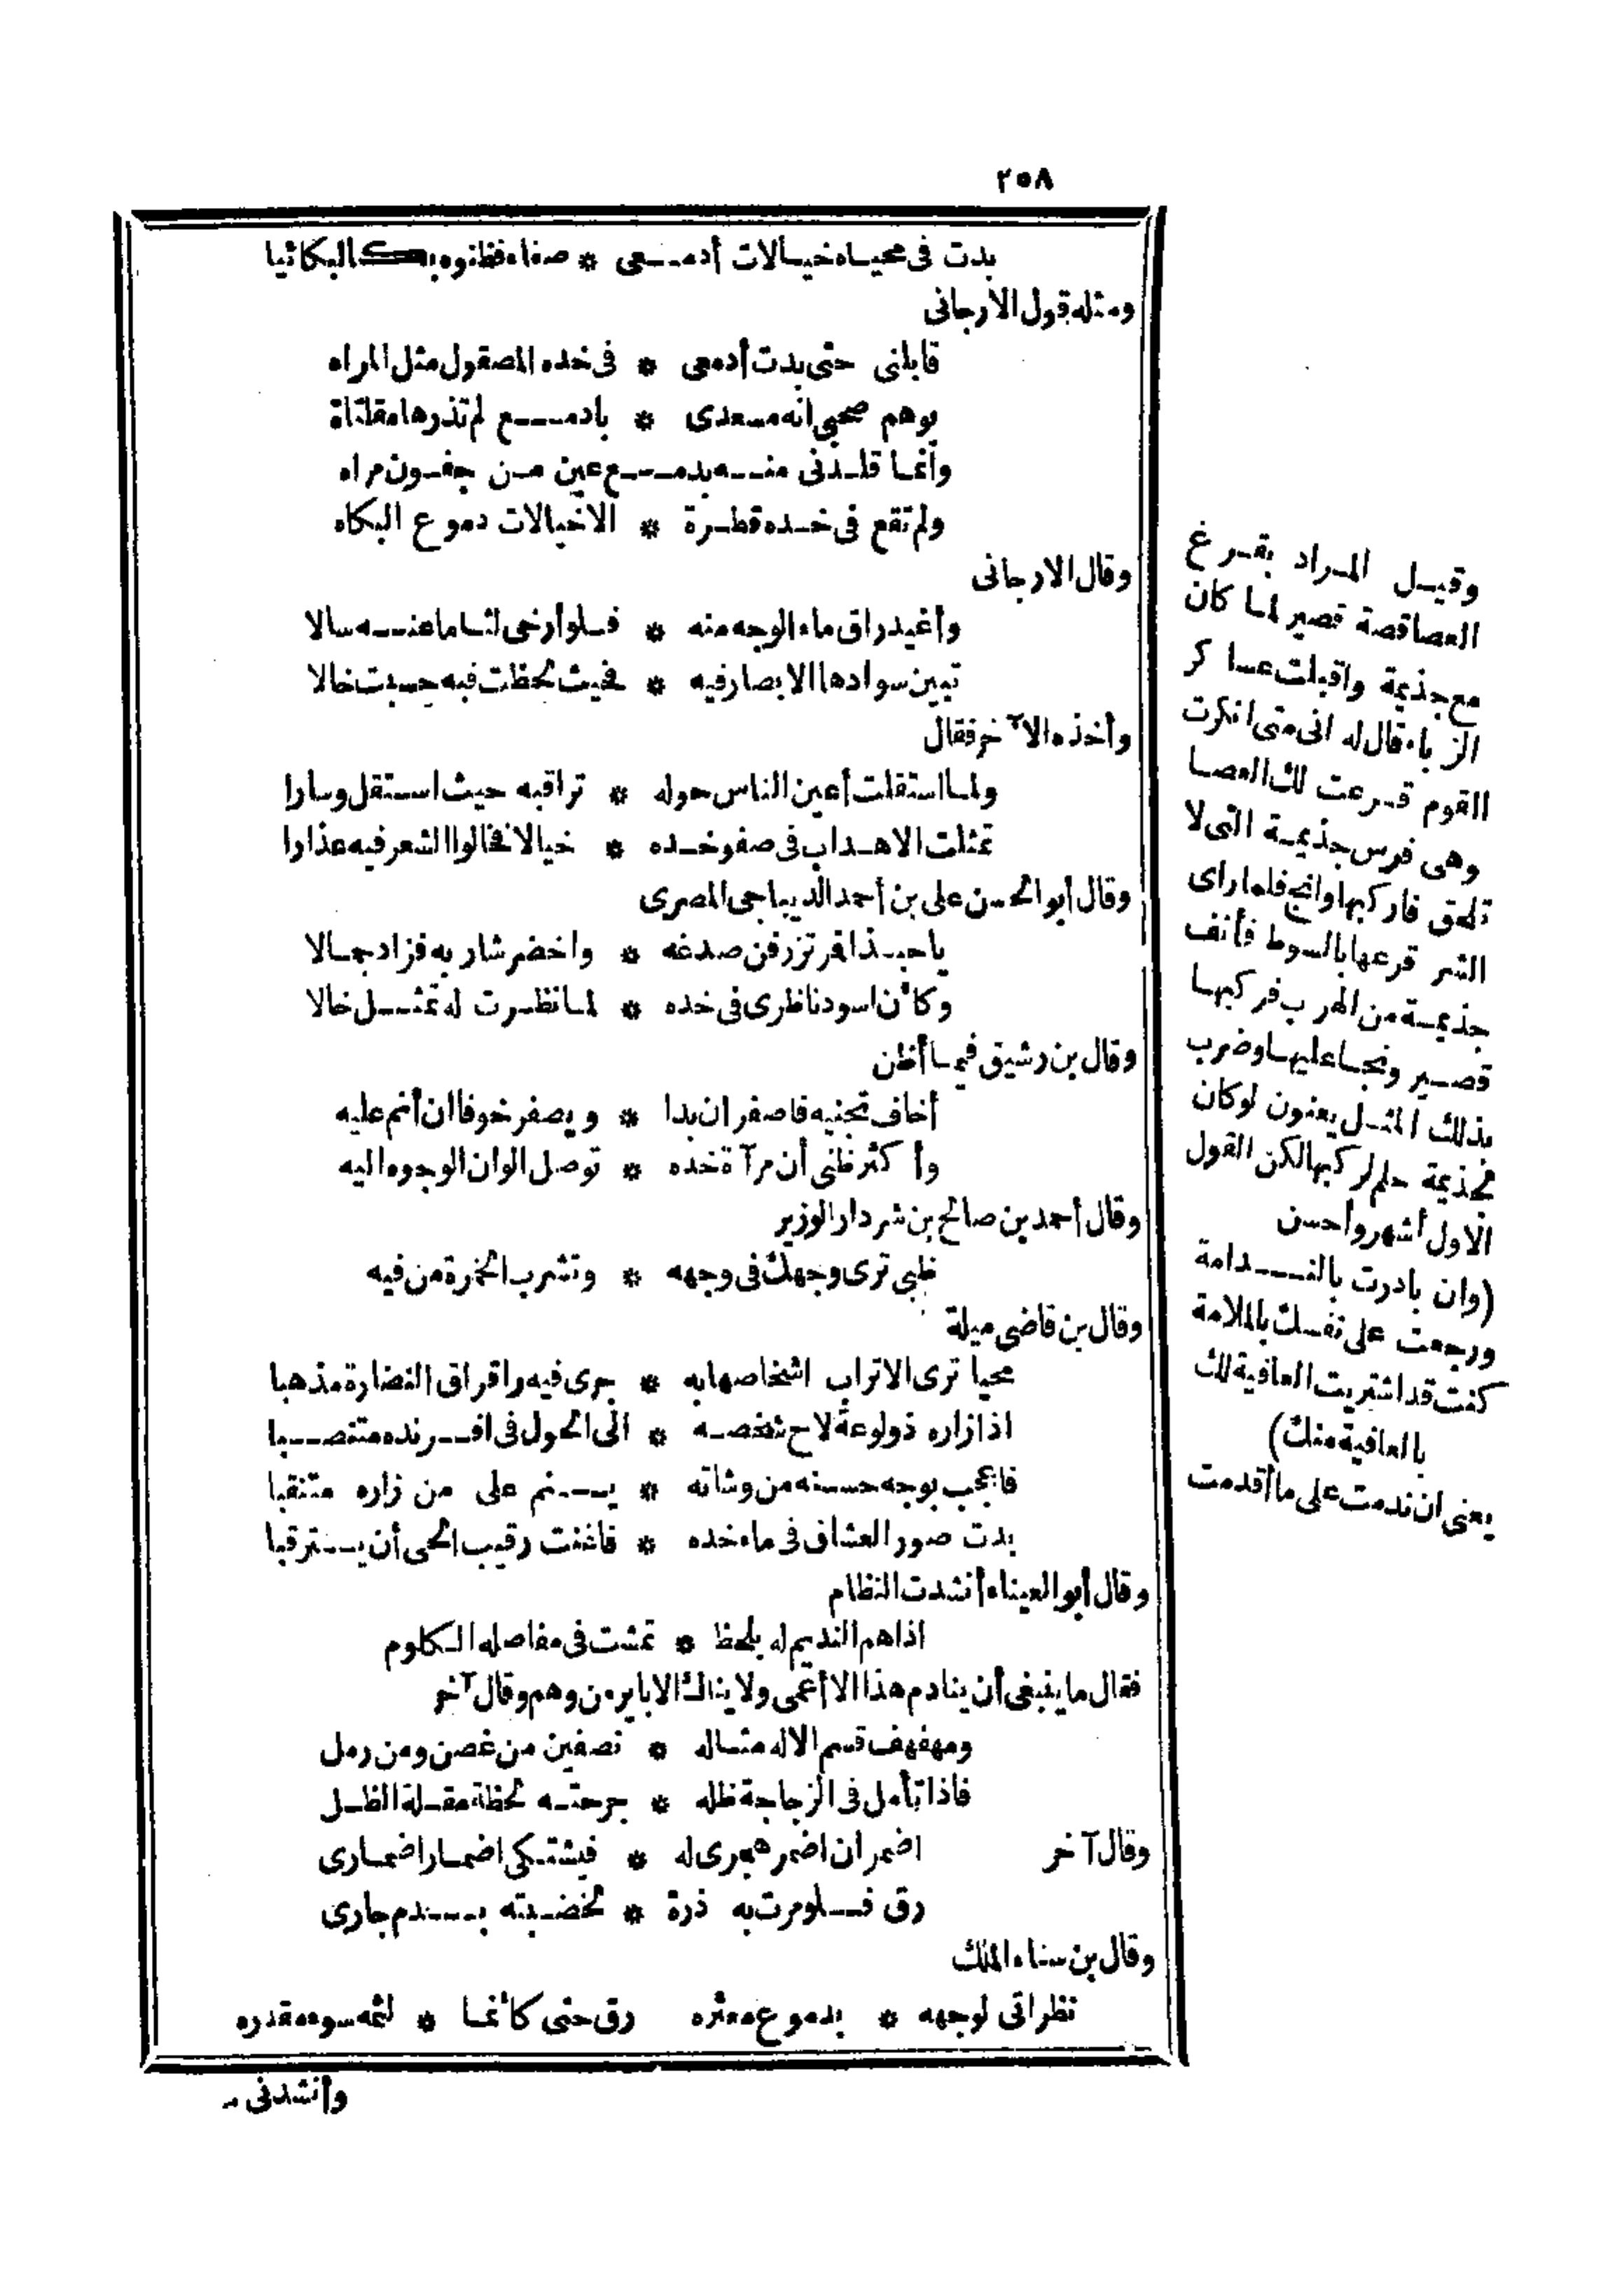 ٢٥٨
بدت فى محياه خيالات أدمعى * صفاء فظنوه بكالبكائيا
ومثله قول الارجانى
قابلنى حتى بدت أدمعى * فى خده المصقول مثل المراه
يوهم صحبى انه مسعدى * بادمع لم تذرها مقلتاة
وانما قلدنى منه بدمع عين من جفون مراه
ولم تقع فى خده قطرة * الاخيالات دموع البكاه
وقال الارجانى
وأغيد راق ماء الوجه منه * فلو أرخى لثاما عنه سالا
تبين سوادها الابصار فيه * فحيث لحظت فيه حسبت خالا
وأخذه الآخر فقال
ولما استقلت أعين الناس حوله * تراقبه حيث استقل وسارا
تمثلت الاهداب فى صفو خده * خيالا فخالوا الشعر فيه عذارا
وقال أبو الحسن على بن أحمد الديباجى المصرى
يا حبذا قمر تزرفن صدغه * واخضر شاربه فزاد جمالا
وكأن اسود ناظرى فى خده * لما نظرت له تمثل خالا
وقال بن رشيق فيما أظن
أخاف تجنيه فاصفر ان بدا * ويصفر خوفا ان أنم عليه
وأكثر ظنى أن مرآة خده * توصل الوان الوجوه اليه
وقال أحمد بن صالح بن شردار الوزير
ظبى ترى وجهك فى وجهه * وتشرب الخمرة من فيه
وقال بن قاضى ميلة
محيا ترى الاتراب اشخاصها به * جرى فيه راقراق النضارة مذهبا
اذا زاره ذو لوعة لاح شخصه * الى الحول فى افرنده متنصبا
فاعجب بوجه حسنه من وشاته * ينم على من زاره متنقبا
بدت صور العشاق فى ماء خده * فاغنت رقيب الحى أن يسترقبا
وقال أبو العيناء أنشدت النظام
اذا هم النديم له بلحظ * تمشت فى مفاصله الكلوم
فقال ما ينبغى أن ينادم هذا الا أعمى ولا يناك الا باير من وهم وقال آخر
ومهفهف قسم الاله مثاله * نصفين من غصن ومن رمل
فاذا تأمل فى الزجاجة ظله * جرحته لحظة مقلة الظل
وقال آخر اضمر ان اضمر هجرى له * فيشتكى اضمار اضمارى
رق فلو مرت به ذرة * لخضبته بدم جارى
وقال بن سناء الملك
نظراتى لوجهه * بدموع معثره رق حتى كأنما * لثمه سوء مقدره
وأنشدنى
وقيل المراد بقرغ
العصا قصة قصير لما كان
مع جذيمة واقبلت عساكر
الزباء قال له انى متى انكرت
القوم قرعت لك العصا
وهى فرس جذيمة التى لا
تلحق فاركبها وانج فلما راى
الشر قرعها بالسوط فأنف
جذيمة من الهرب فركبها
قصير ونجا عليها وضرب
بذلك المثل يعنون لو كان
لجذيمة حلم لركبها لكن القول
الاول أشهر وأحسن
(وان بادرت بالندامة
ورجعت على نفسك بالملامة
كنت قد اشتريت العافية لك
بالعافية منك)
يعنى ان ندمت على ما أقدمت